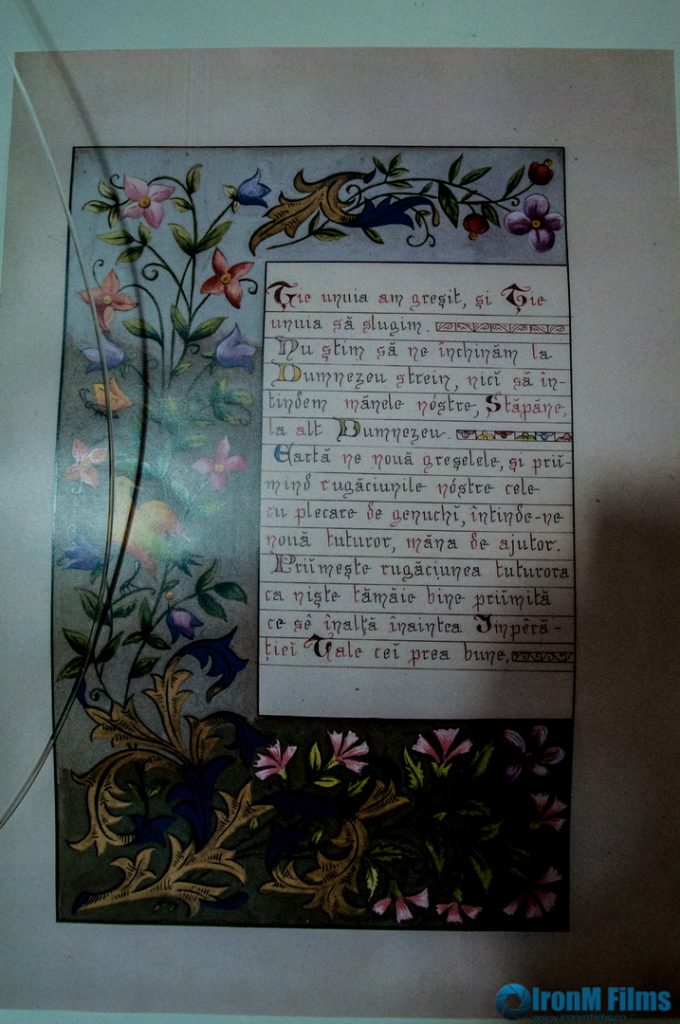 Ție unuia am greșit, și Ție
unuia să slugim.
Nu știm să ne închinăm la
Dumnezeu strein, nicĭ să în-
tindem mănele nóstre, Stăpâne,
la alt Dumnezeu.
Eartă ne nouă greșelele, și prii-
mind rugăciunile nóstre cele
cu plecare de genuchĭ, întinde-ne
nouă tuturor, măna de ajutor.
Priĭmește rugăciunea tuturora
ca niște tămăie bine priĭmită
ce sê înalță înaintea Impêră-
ției Tale ceĭ prea bune,
IronM Films
www.ironmfilms.ro